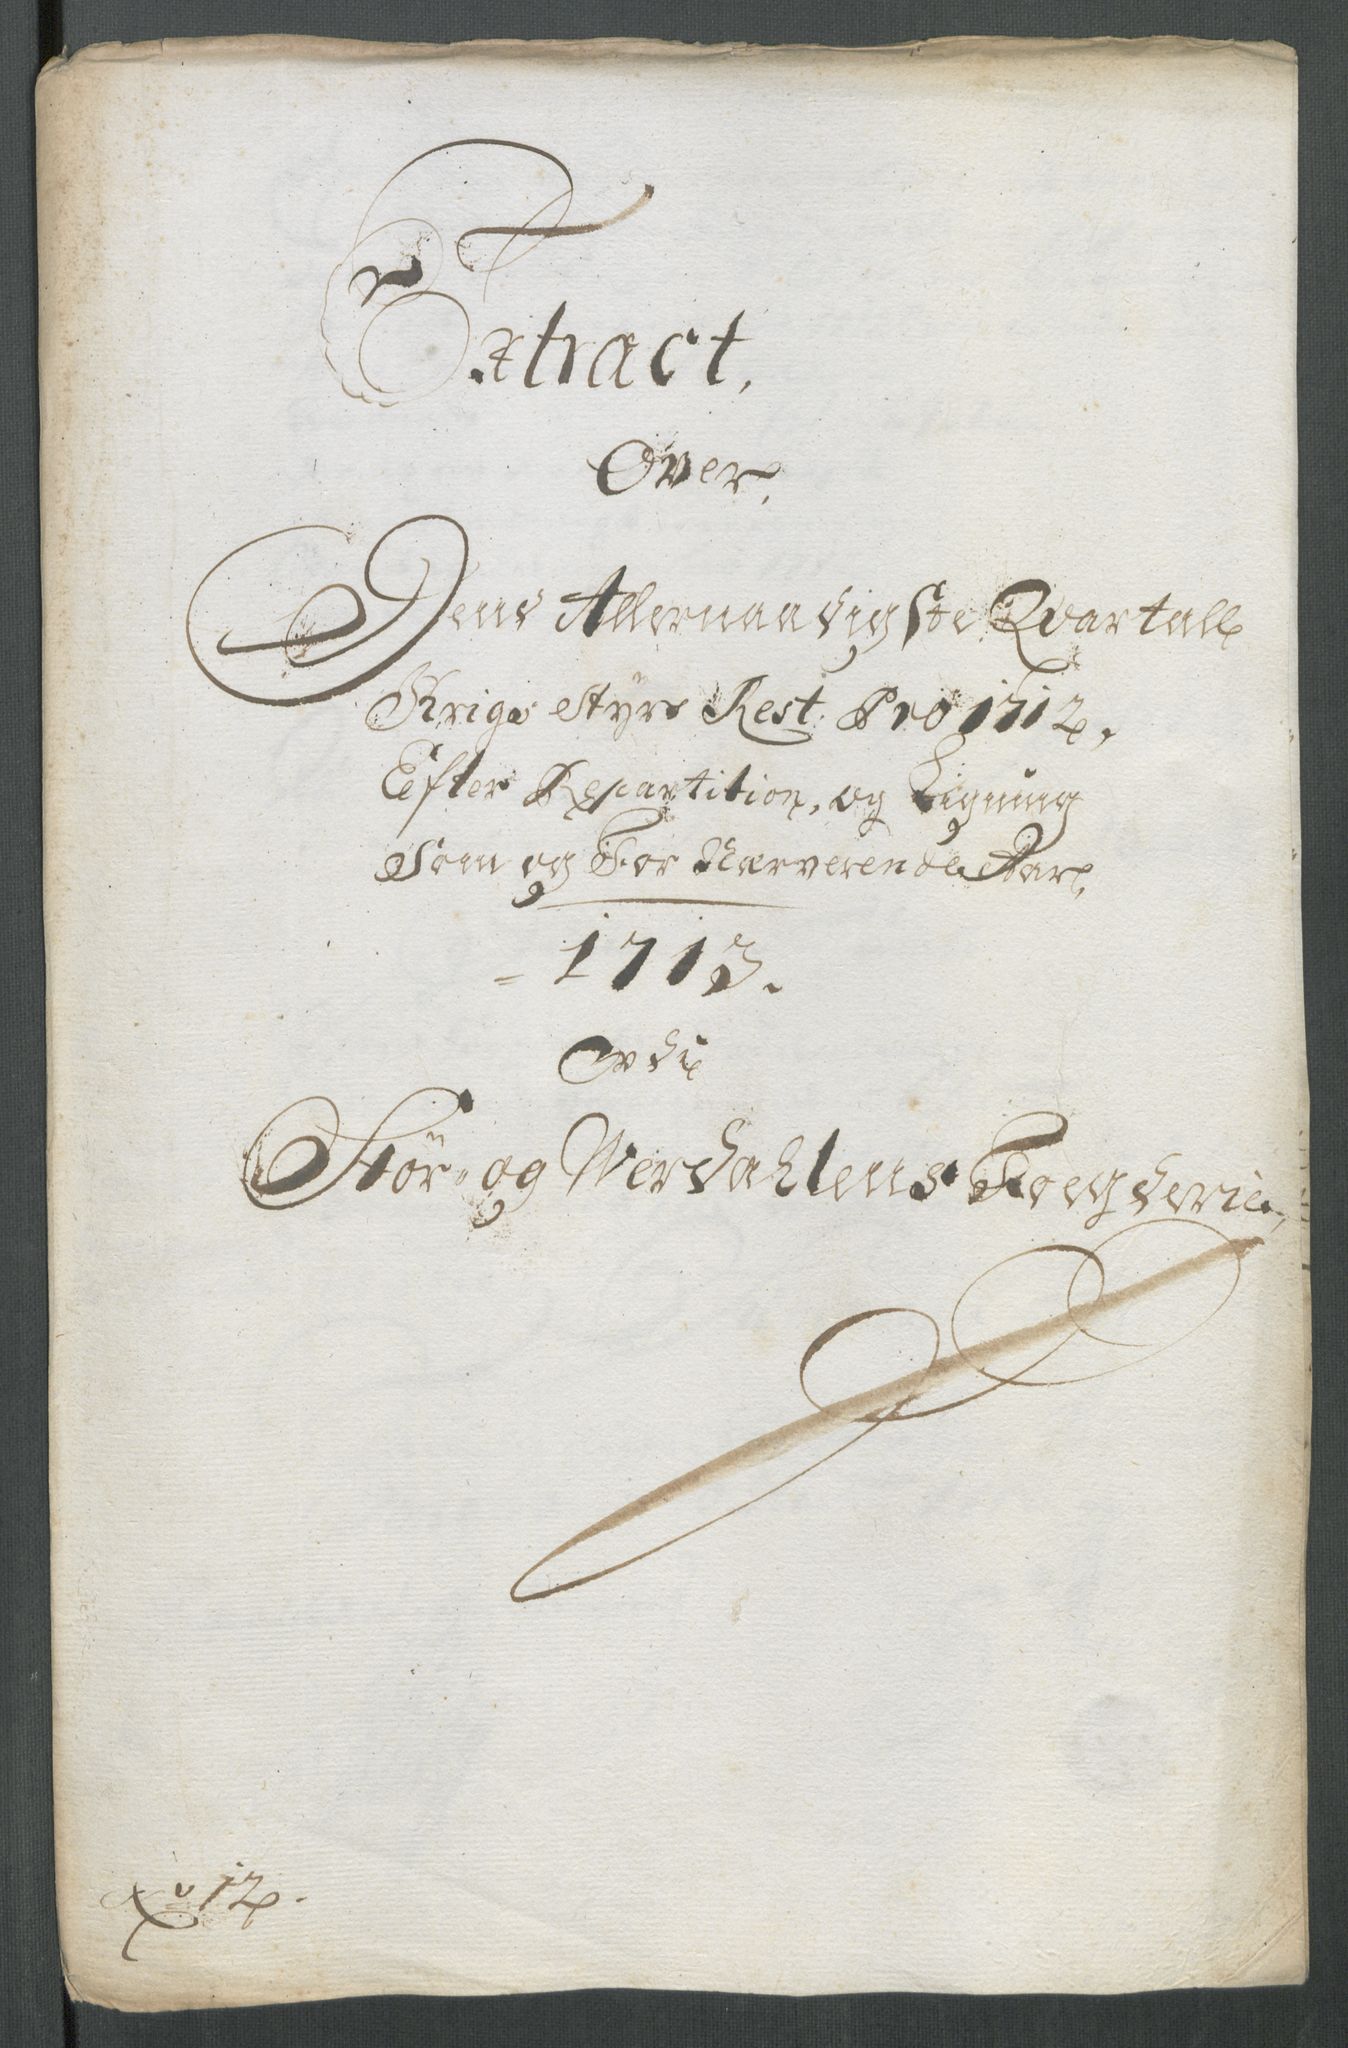 Extract,
Over,
Dend Allernaadigste Qvartall
Krigs Styrs Rest Pro 1712,
Efter Repartition, og Ligning
Som og For Nærverende Aar,
1713.
Udi
Stör- og Werdahlens Foegderie,
No 12.